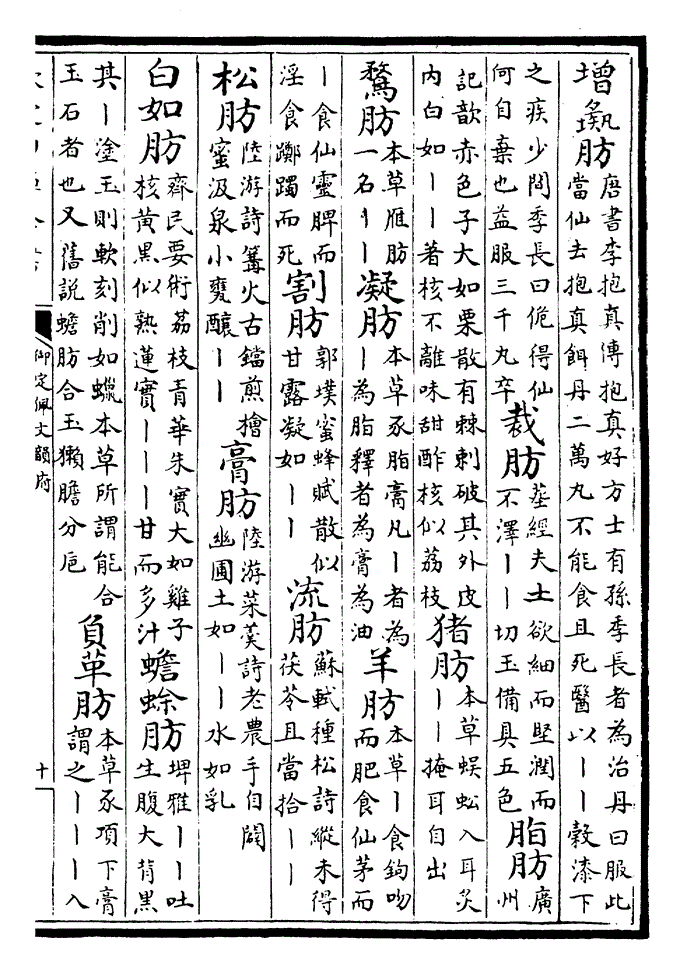 增彘肪 唐書李抱真傳抱真好方士有孫季長者為治丹曰服此當仙去抱真餌丹二萬丸不能食且死醫以丨丨穀漆下
之疾少間季長曰佹得仙何自棄也益服三千丸卒 裁肪 葬經夫土欲細而堅潤而不澤丨丨切玉備具五色 脂肪 廣州
記歆赤色子大如栗散有棘刺破其外皮内白如丨丨著核不離味甜酢核似荔枝 猪肪 本草蜈蚣入耳炙丨丨掩耳自出
鶩肪 本草雁肪一名丨丨 凝肪 本草豕脂膏凡丨者為丨為脂釋者為膏為油 羊肪 本草丨食鉤吻而肥食仙茅而
丨食仙靈脾而淫食躑躅而死 割肪 郭璞蜜蜂賦散似甘露凝如丨丨 流肪 蘇軾種松詩縱未得茯苓且當拾丨丨
松肪 陸游詩篝火古鐺煎檜蜜汲泉小甕釀丨丨 膏肪 陸游菜羹詩老農手自闢幽圃土如丨丨水如乳
白如肪 齊民要術荔枝青華朱實大如雞子核黃黑似熟蓮實丨丨丨甘而多汁 蟾蜍肪 埤雅丨丨吐生腹大背黑
其丨塗玉則軟刻削如蠟本草所謂能合玉石者也又舊説蟾肪合玉獺膽分巵 負革肪 本草豕項下膏謂之丨丨丨入
御定佩文韻府
十